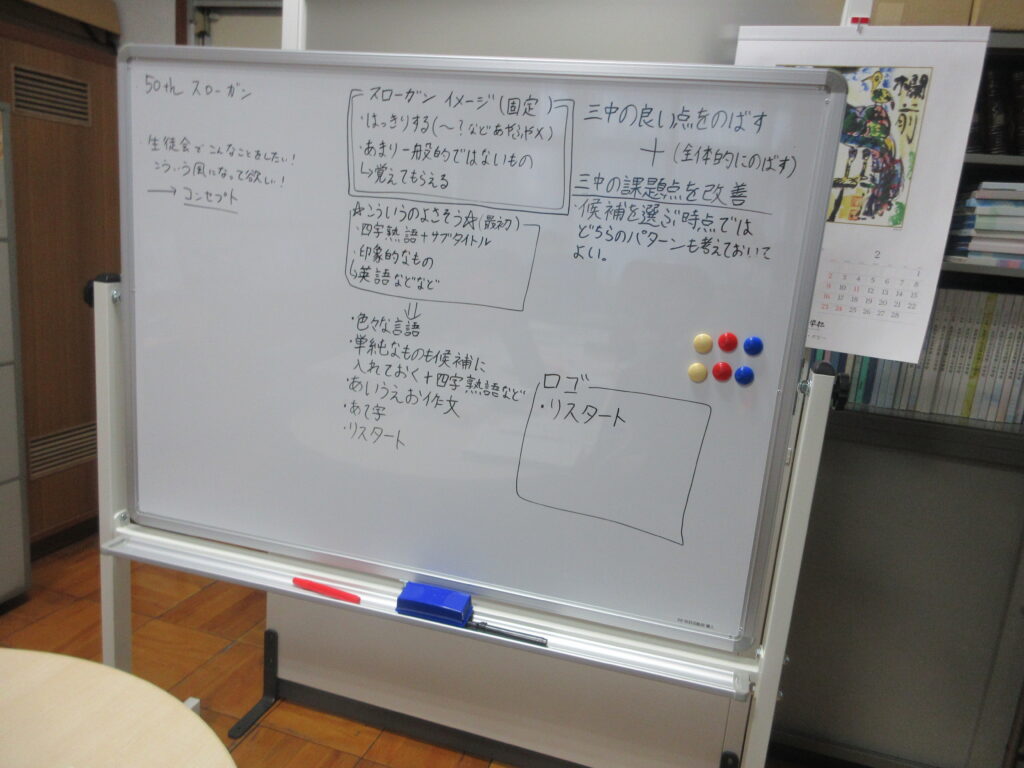 50th スローガン
・生徒会でこんなことをしたい!
こういう風になって欲しい!
→コンセプト
スローガン イメージ(固定)
・はっきりする(〜?などあやふや×)
・あまり一般的ではないもの
↳覚えてもらえる
☆こういうのよさそう☆(最初)
・四字熟語+サブタイトル
・印象的なもの
↳英語などなど
⇓
・色々な言語
・単純なものも候補に
入れておく+四字熟語など
・あいうえお作文
・あて字
・リスタート
三中の良い点をのばす
+(全体的にのばす)
三中の課題点を改善
・候補を選ぶ時点では
どちらのパターンも考えておいて
よい。
ロゴ
・リスタート
欄
前
2
1
2 3 4 5 6 7 8
9 10 11 12 13 14 15
16 17 18 19 20 21 22
23 24 25 26 27 28